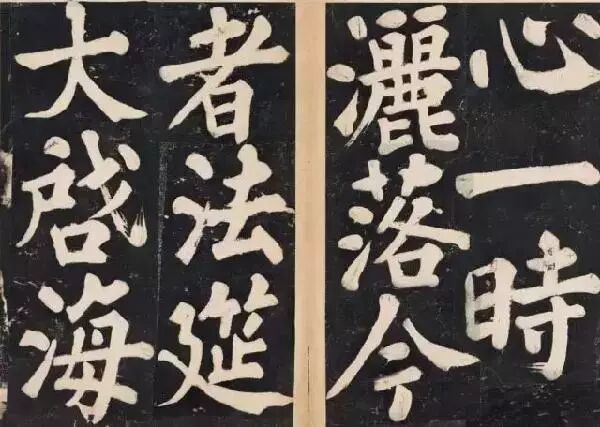 心一時
灑落今
者法筵
大啟海